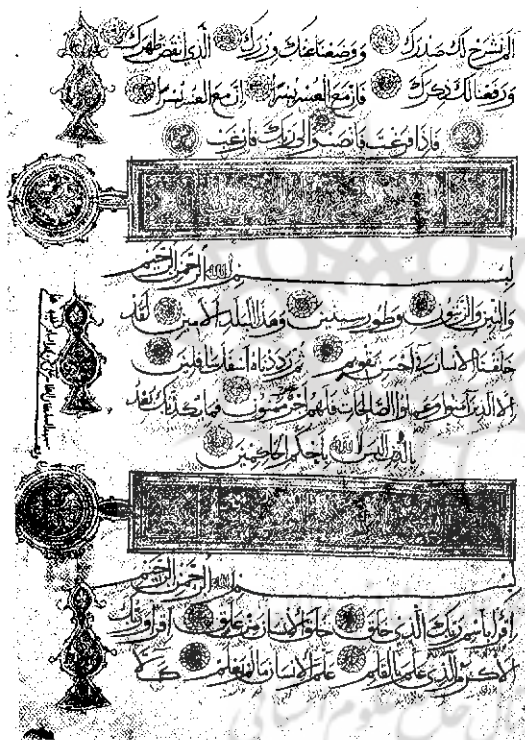 الم نشرح لك صدرك ووضعنا عنك وزرك الذي انقض ظهرك
ورفعنا لك ذكرك فان مع العسر يسرا ان مع العسر يسرا
فاذا فرغت فانصب والى ربك فارغب
بسم الله الرحمن الرحيم
والتين والزيتون وطور سينين وهذا البلد الامين لقد
خلقنا الانسان في احسن تقويم ثم رددناه اسفل سافلين
الا الذين آمنوا وعملوا الصالحات فلهم اجر غير ممنون فما يكذبك بعد
بالدين اليس الله باحكم الحاكمين
بسم الله الرحمن الرحيم
اقرا باسم ربك الذي خلق خلق الانسان من علق اقرا وربك
الاكرم الذي علم بالقلم علم الانسان ما لم يعلم كلا